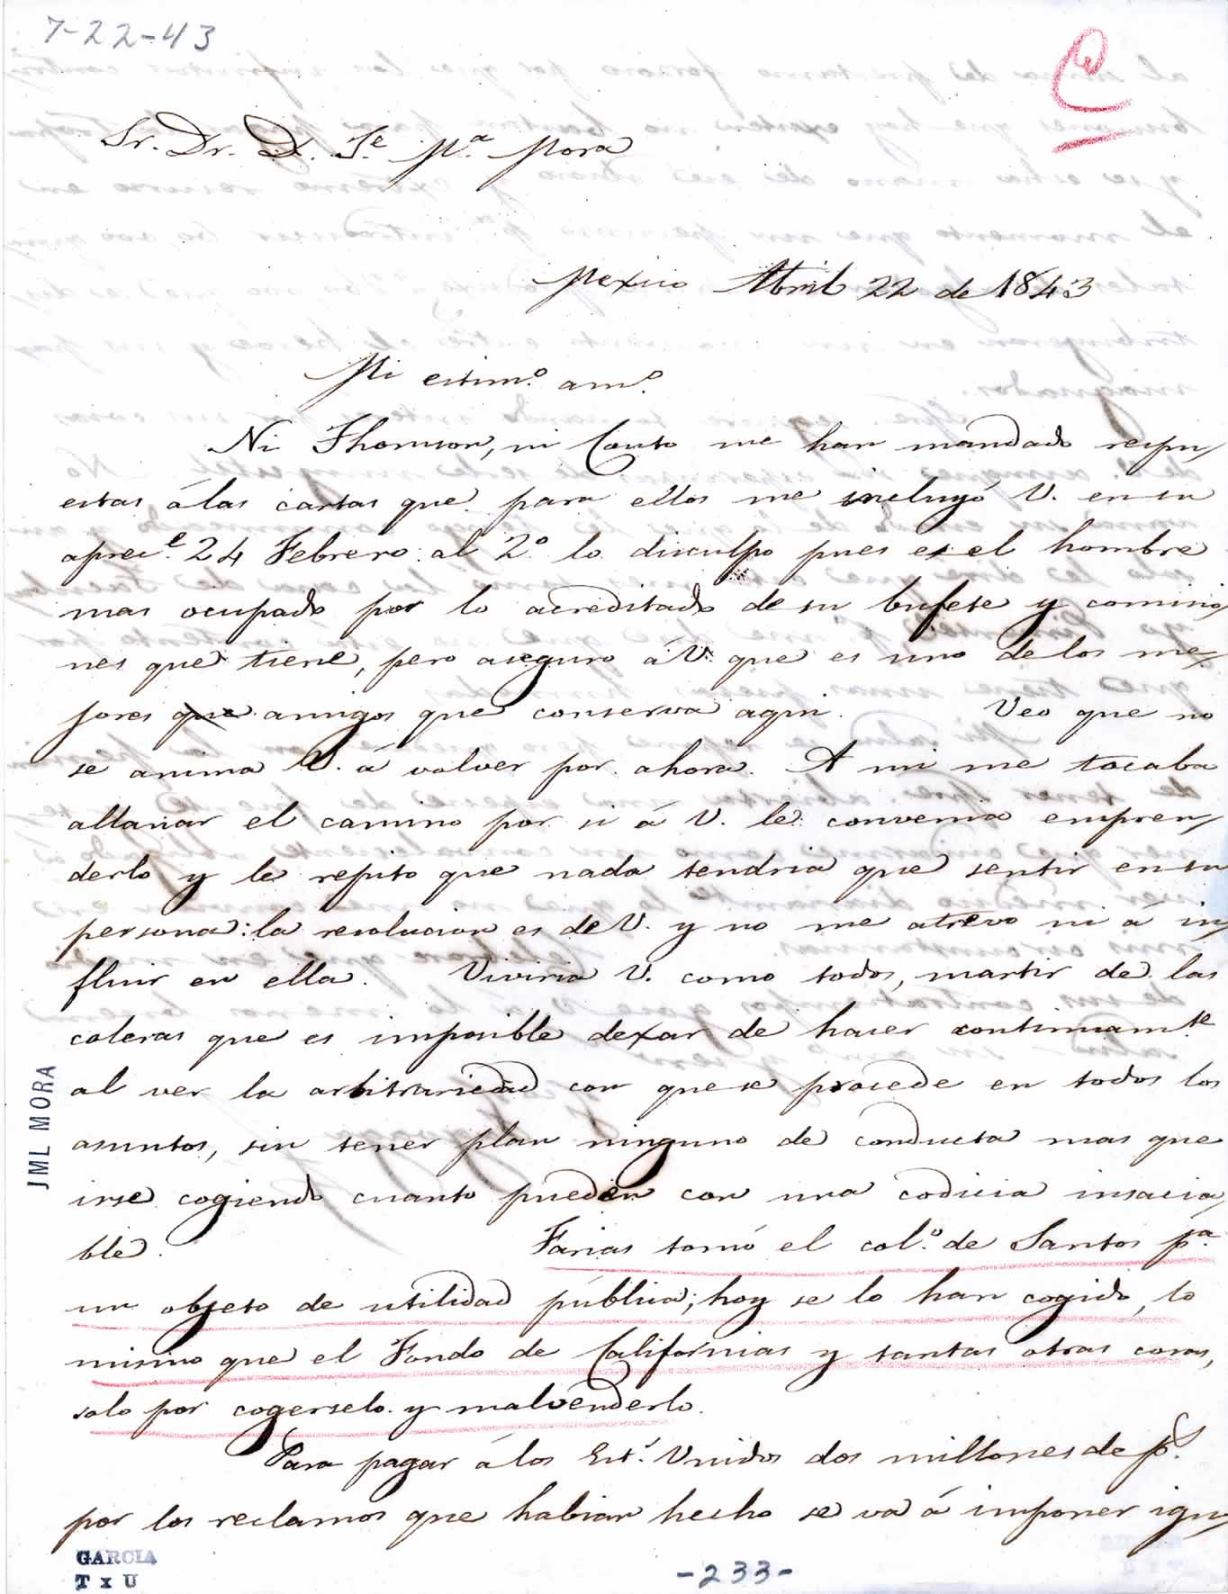 7-22-43
C
Sr. Dr. D. Je. Ma. Mora
Mexico Abril 22 de 1843
Mi estimo. amo.
Ni Thomson, ni Couto me han mandado respu
estas á las cartas que para ellos me incluyó V. en su
aprece. 24 Febrero: al 2o. lo disculpo pues es el hombre
mas ocupado por lo acreditado de su bufete y comisio
nes que tiene, pero aseguro á V. que es uno de los me
jores que amigos que conserva aqui. Veo que no
se anima V. á volver por ahora. A mi me tocaba
allanar el camino por si á V. le convenia empren
derlo y le repito que nada tendria que sentir en su
persona: la resolucion es de V. y no me atrevo ni á in
fluir en ella. Viviria V. como todos, martir de las
coleras que es imposible dexar de hacer continuamte
al ver la arbitrariedad con que se procede en todos los
asuntos, sin tener plan ninguno de conducta mas que
irse cogiendo cuanto pueden con una codicia insacia
ble. Farias tomó el colo. de Santos pa.
un objeto de utilidad pública; hoy se lo han cogido, lo
mismo que el Fondo de Californias y tantas otras cosas,
solo por cogerselo y malvenderlo.
Para pagar á los Ests. Unidos dos millones de ps.
por los reclamos que habian hecho se va á imponer igu
JML MORA
GARCIA
T x U
-233-